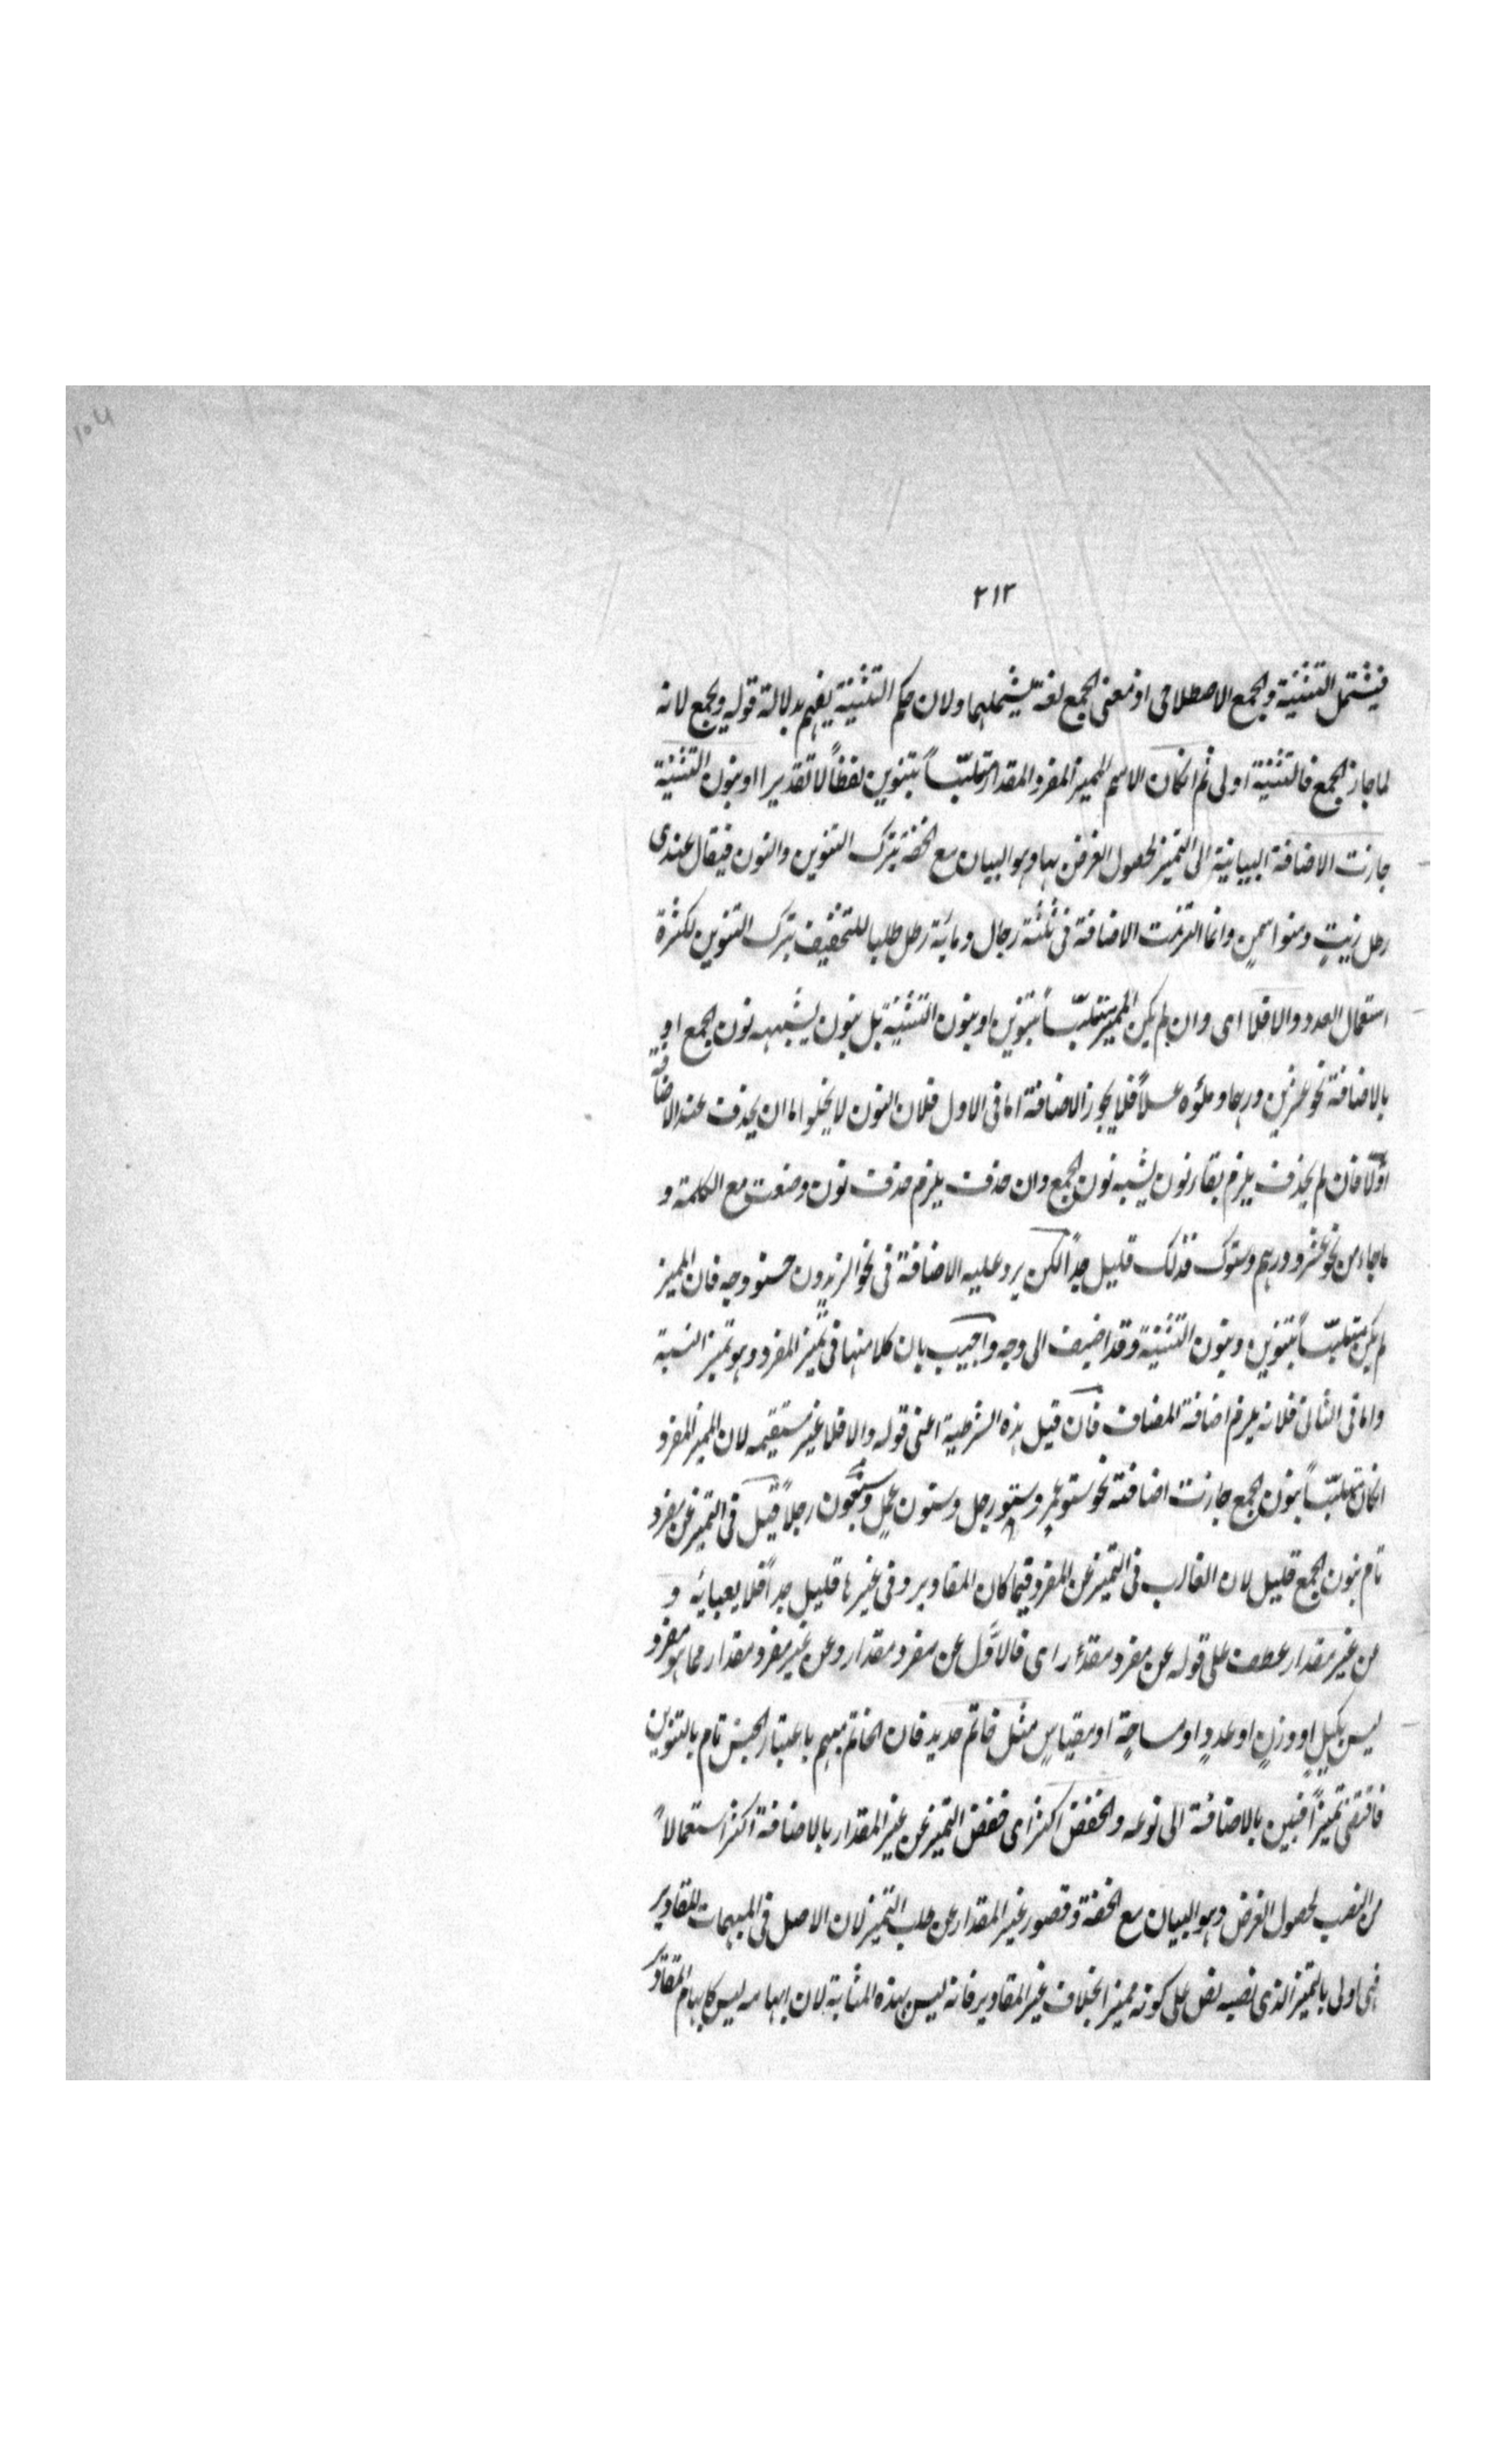 ٣١٢
فيشتمل التثنية والجمع الاصطلاحى اذ معنى الجمع لغة يشملهما ولان حكم التثنية يفهم بدلالة قوله ويجمع لانه
لما جاز الجمع فالتثنية اولى ثم انكان الاسم المميز المفرد المقدار متلبّساً بتنوين لفظاً او تقديرا او بنون التثنية
جازت الاضافة البيانية الى التميز لحصول الغرض بها وهو البيان مع الخفة بترك التنوين والنون فيقال عندى
رطل زيتٍ ومنوا سمنٍ وانما التزمت الاضافة فى ثلثة رجال ومائة رجل طلبا للتخفيف بترك التنوين لكثرة
استعمال العدد والا فلا اى وان لم يكن المميز متلبّساً بتنوين او بنون التثنية بل بنون يشبهه نون الجمع او
بالاضافة نحو عشرين درهما وملؤه عسلاً فلا يجوز الاضافة اما فى الاول فلان النون لا يخلو اما ان يحذف عند الاضافة
اولا فان لم يحذف يلزم بقاء نون يشبه نون الجمع وان حذف يلزم حذف نون وضعت مع الكلمة و
ما جاء من نحو عشرو درهم وستوك فذلك قليل جداً لكن يرد عليه الاضافة فى نحو الزيدون حسنو وجه فان المميز
لم يكن متلبّساً بتنوين وبنون التثنية وقد اضيف الى وجه واجيب بان كلامنا فى تميز المفرد وهو تميز النسبة
واما فى الثانى فلانه يلزم اضافة المضاف فان قيل هذه الشرطية اعنى قوله والا فلا غير مستقيمه لان المميز المفرد
انكان متلبّساً بنون الجمع جازت اضافته نحو ستو عمرٍ وستو رجل وستون عملٍ وستون رجلاً قيل فى التميز عن مفرد
تام بنون الجمع قليل لان الغالب فى التميز عن المفرد فيما كان المقادير وفى غيرها قليل جداً فلا يعبا به و
عن غير مقدار عطف على قوله عن مفرد مقدار اى فالاوّل عن مفرد مقدار وعن غير مفرد مقدار مما هو مفرد
ليس بكيلٍ او وزنٍ او عددٍ او مساحةٍ او مقياسٍ مثل خاتم حديد فان الخاتم مبهم باعتبار الجنس تام بالتنوين
فاقتضى تميزاً فبين بالاضافة الى نوعه والخفض اكثر اى خفض التميز عن غير المقدار بالاضافة اكثر استعمالاً
من النصب لحصول الغرض وهو البيان مع الخفة وقصور غير المقدار عن طلب التميز لان الاصل فى المبهمات المقادير
فهى اولى بالتميز الذى نصبه نص على كونه مميزا بخلاف غير المقادير فانه ليس بهذه المثابة لان ابهامه ليس كابهام المقادير